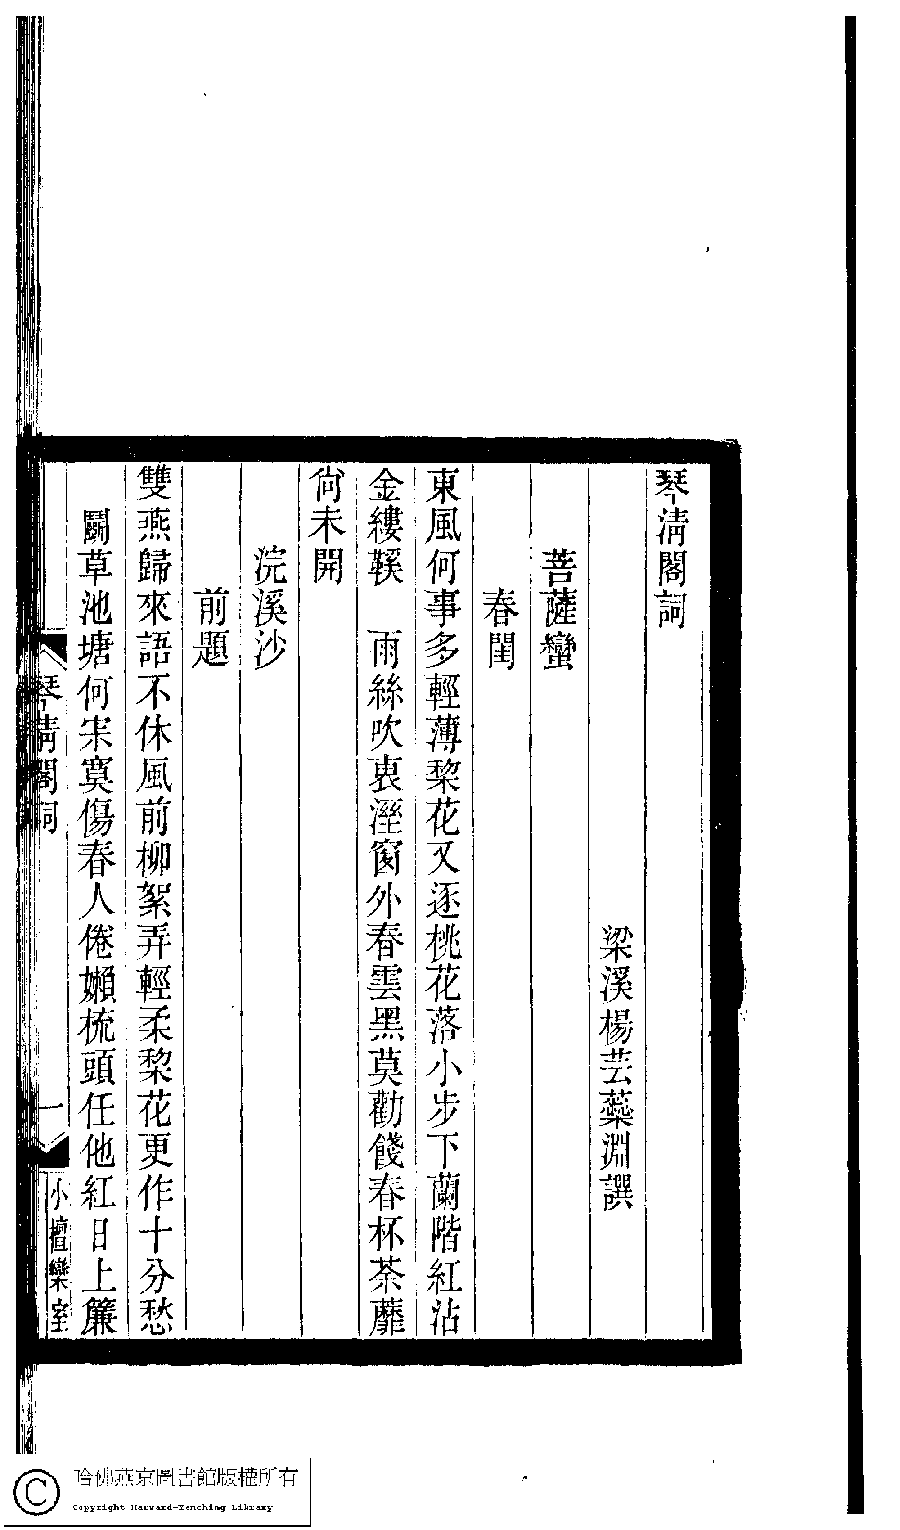 琴清閣詞
梁溪楊芸蘂淵譔
菩薩蠻
春閨
東風何事多輕薄棃花又逐桃花落小步下蘭階紅沾
金縷鞵　雨絲吹褱溼窗外春雲黑莫勸餞春杯荼蘼
尙未開
浣溪沙
前題
雙燕歸來語不休風前柳絮弄輕柔棃花更作十分愁
鬬草池塘何宋寞傷春人倦嬾梳頭任他紅日上簾
琴清閣詞
一
小檀欒室
哈佛燕京圖書館版權所有
Copyright Harvard-Yenching Library